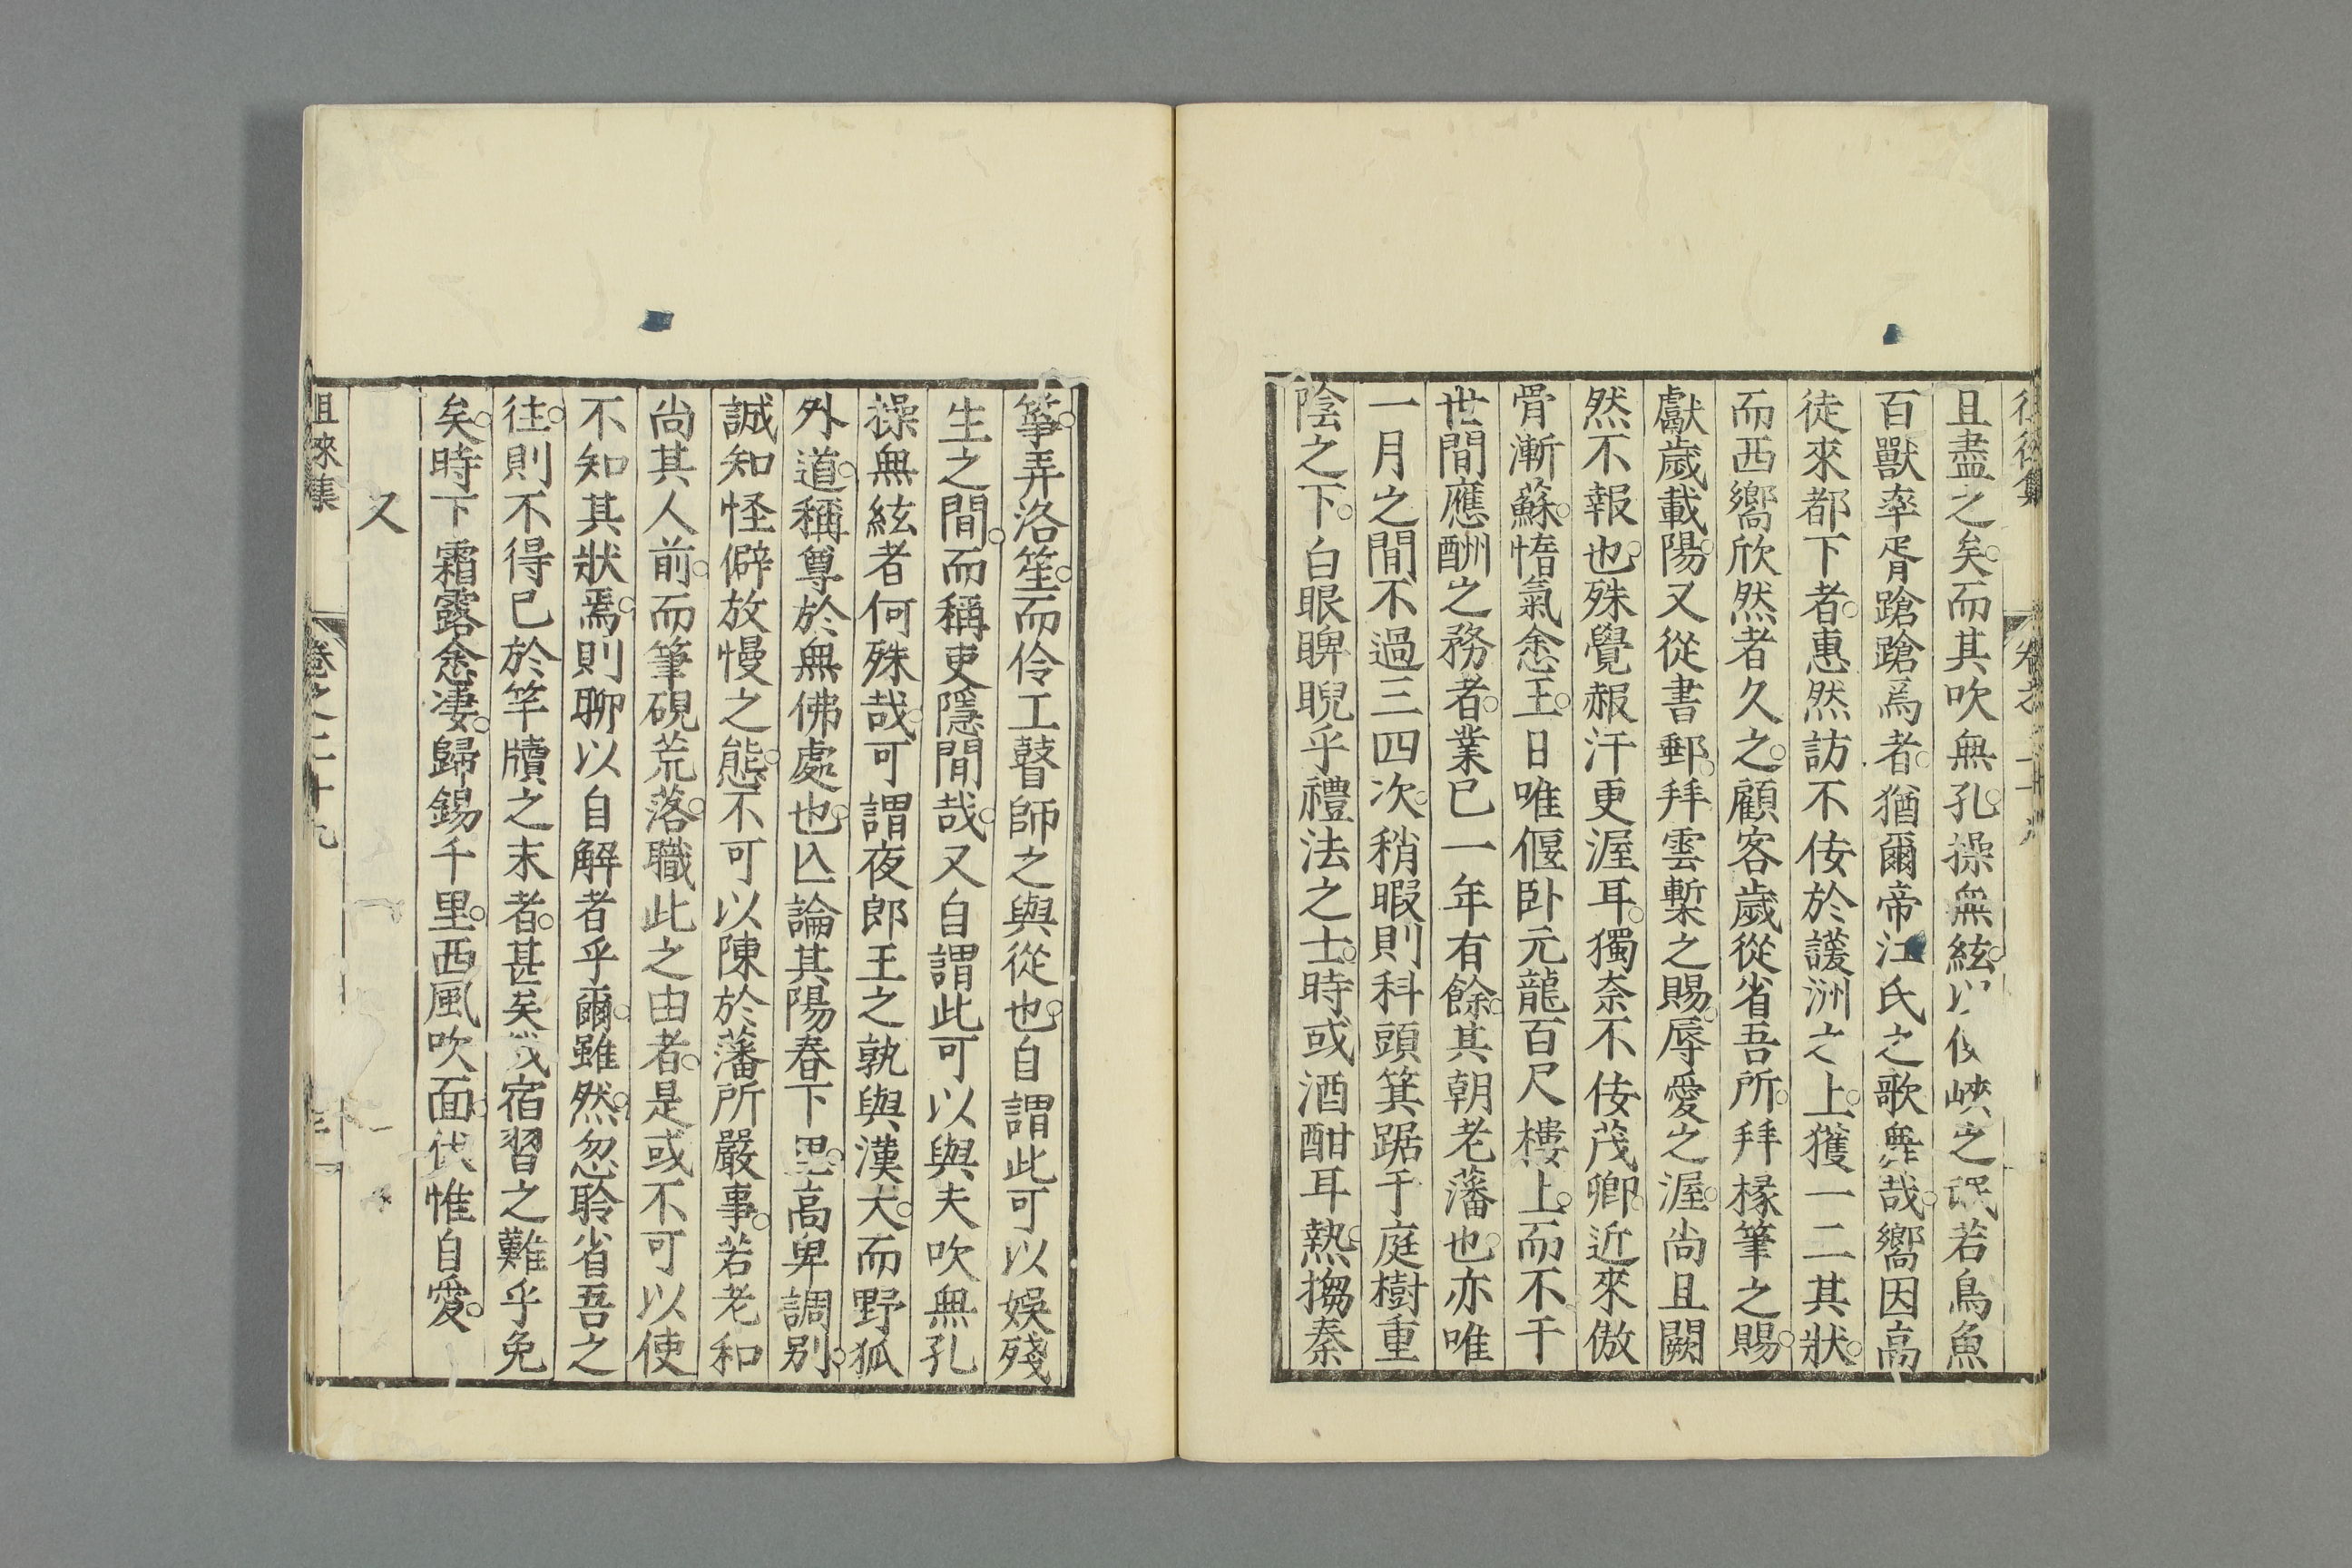 且盡之矣而其吹無孔操無絃以使峽之氓若鳥魚
百獸率胥蹌蹌焉者猶爾帝江氏之歌舞哉嚮因高
徒來都下者惠然訪不佞於護洲之上獲一二其狀
而西嚮欣然者久之顧客歲從省吾所拜椽筆之賜
獻歲載陽又從書郵拜雲槧之賜辱愛之渥尚且闕
然不報也殊覺赧汗更渥耳獨奈不佞茂卿近來傲
骨漸蘇惰氣悆王日唯偃卧元龍百尺樓上而不干
世間應酬之務者業已一年有餘其朝老藩也亦唯
一月之間不過三四次稍暇則科頭箕踞于庭樹重
陰之下白眼睥睨乎禮法之士時或酒酣耳熱搊秦
箏弄洛笙而伶工瞽師之與從也自謂此可以娛殘
生之間而稱吏隱間哉又自謂此可以與夫吹無孔
操無絃者何殊哉可謂夜郎王之孰與漢大而野狐
外道稱尊於無佛處也亾論其陽春下里高卑調別
誠知怪僻放慢之態不可以陳於藩所嚴事若老和
尚其人前而筆硯荒落職此之由者是或不可以使
不知其狀焉則聊以自解者乎爾雖然忽聆省吾之
往則不得已於竿牘之末者甚矣哉宿習之難乎免
矣時下霜露悆凄歸錫千里西風吹面伏惟自愛
又
徂徠集 卷之二十九